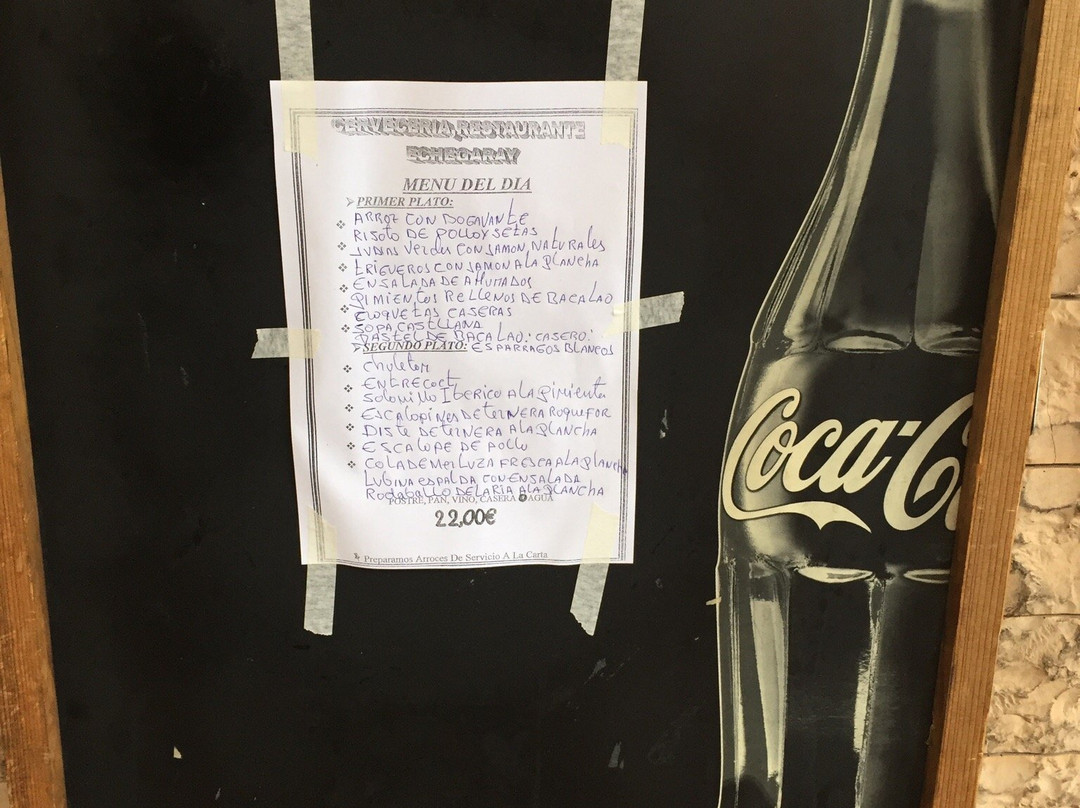 CERVECERIA RESTAURANTE
ECHEGARAY
MENU DEL DIA
PRIMER PLATO:
ARROZ CON BOGAVANTE
RISOTO DE POLLO Y SETAS
JUDIAS VERDES CON JAMON, NATURALES
TRIGUEROS CON JAMON A LA PLANCHA
ENSALADA DE AHUMADOS
PIMIENTOS RELLENOS DE BACALAO
CROQUETAS CASERAS
SOPA CASTLLANA
PASTEL DE BACALAO: CASERO:
SEGUNDO PLATO: ESPARRAGOS BLANCOS
Chuleton
ENTRECOCT
SOLOMILLO IBERICO A LA PIMIENTA
ESCALOPINES DE TERNERA ROQUEFOR
DE TERNERA A LA PLANCHA
ESCALOPE DE POLLO
COLA DE MERLUZA FRESCA A LA PLANCHA
LUBINA ESPALDA CON ENSALADA
RODABALLO DE LA RIA A LA PLANCHA
POSTRE, PAN, VINO, CASERA O AGUA
22,00€
Preparamos Arroces De Servicio A La Carta
Coca-Co